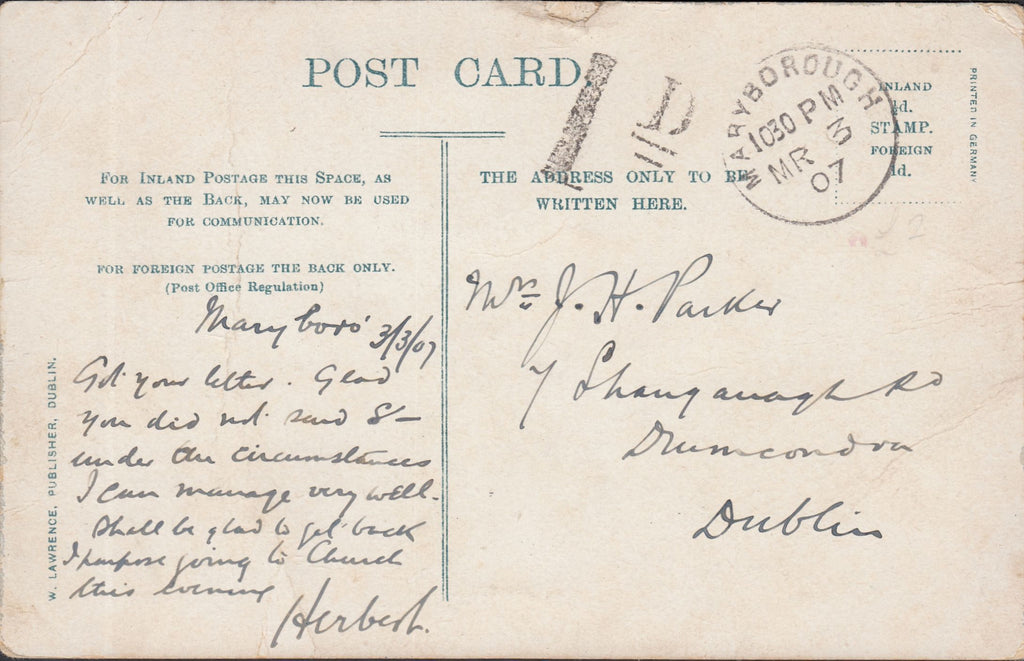 POST CARD.
1D
MARYBOROUGH
1030 PM
MR 3
07
INLAND
½d.
STAMP.
FOREIGN
1d.
PRINTED IN GERMANY
FOR INLAND POSTAGE THIS SPACE, AS
WELL AS THE BACK, MAY NOW BE USED
FOR COMMUNICATION.
FOR FOREIGN POSTAGE THE BACK ONLY.
(Post Office Regulation)
THE ADDRESS ONLY TO BE
WRITTEN HERE.
W. LAWRENCE, PUBLISHER, DUBLIN.
Maryboro' 3/3/07
Got your letter. Glad
you did not send
under the circumstances
I can manage very well.
Shall be glad to get back
I purpose going to Church
this evening
Herbert.
Mrs J. H. Parker
7 Shanganagh Rd
Drumcondra
Dublin